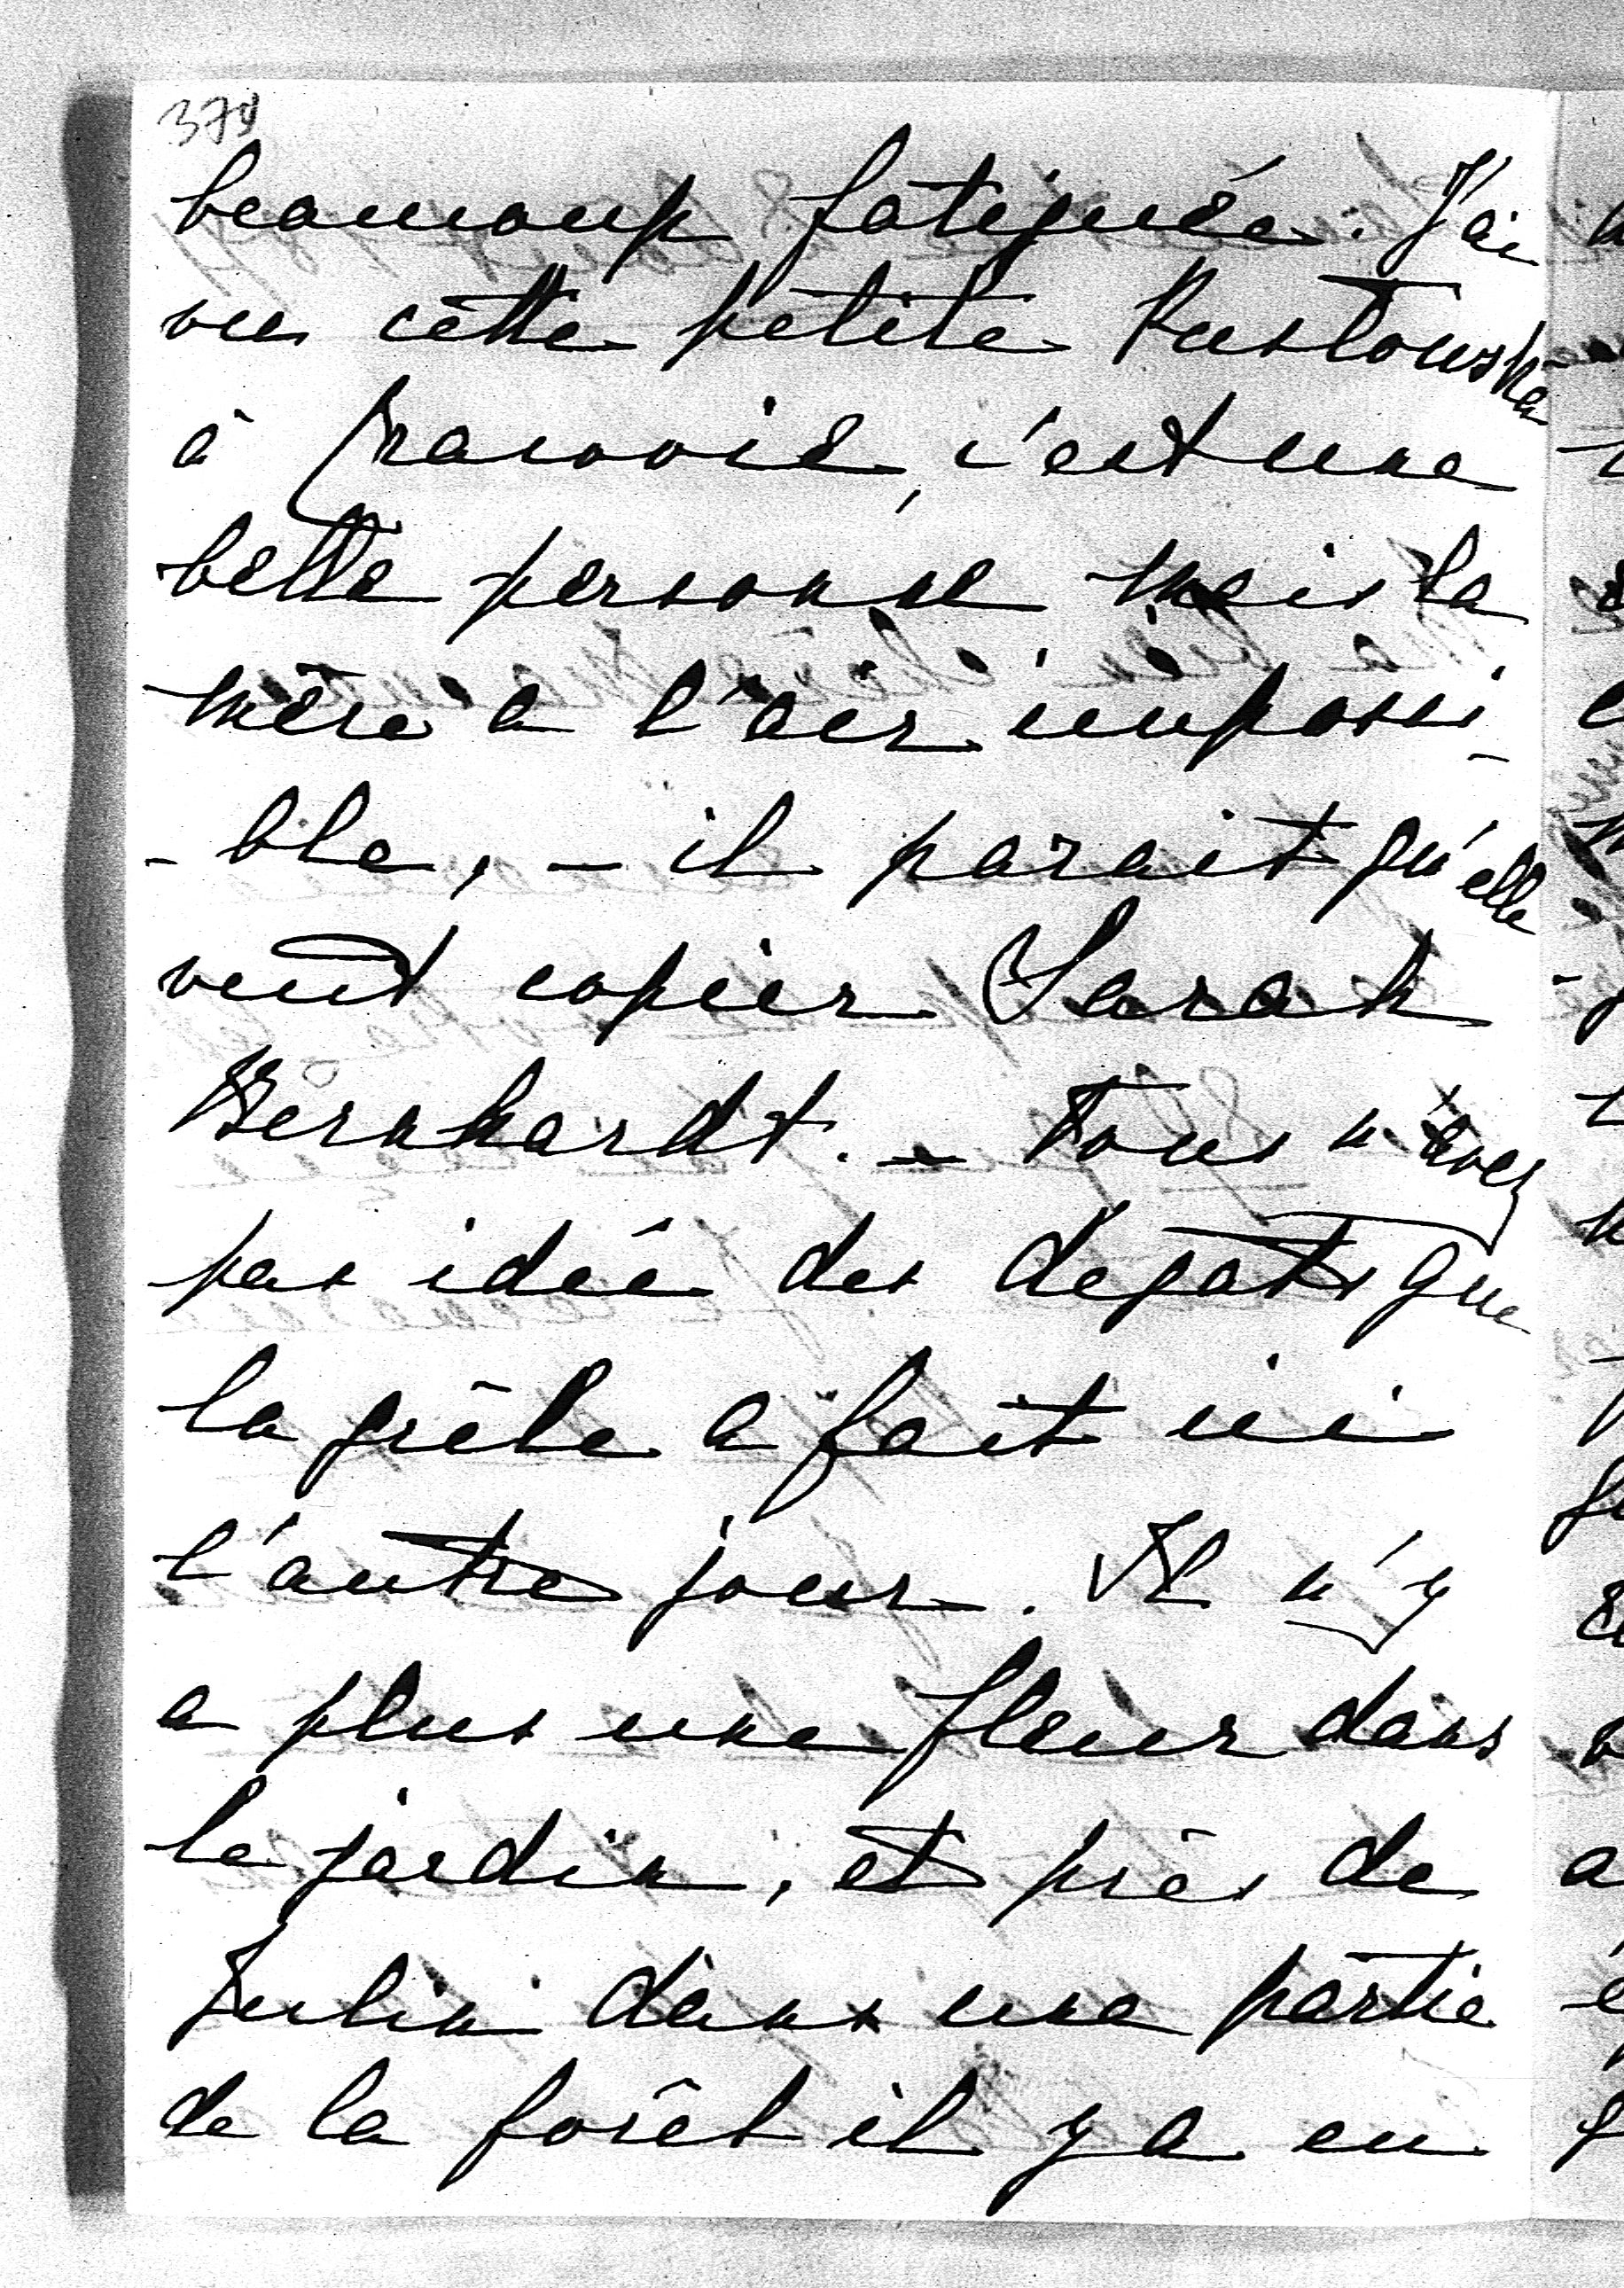 beaucoup fatiguée. J'ai
vu cette petite Rustowska
à Cracovie, c'est une
belle personne mais la
mère a l'air impossi-
-ble, – il parait qu'elle
veut copier Sarah
Bernhardt. – Vous n'avez
pas idée des degats que
la grêle a fait ici
l'autre jour. Il n'y
a plus une fleur dans
le jardin, et près de
Julin dans une partie
de la forêt il y a eu